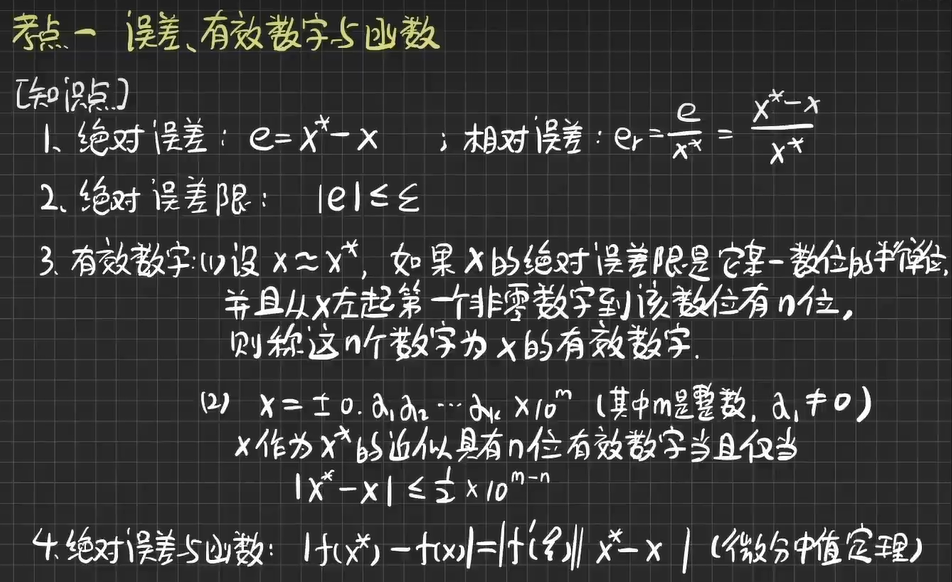 考点一 误差、有效数字与函数
[知识点]
1、绝对误差：e=x*-x ；相对误差：eᵣ=e/x*=(x*-x)/x*
2、绝对误差限： |e|≤ε
3、有效数字：(1)设x≈x*，如果x的绝对误差限是它某一数位的半个单位，
并且从x左起第一个非零数字到该数位有n位，
则称这n个数字为x的有效数字.
(2) x=±0.a₁a₂…aₖ×10^m (其中m是整数, a₁≠0)
x作为x*的近似具有n位有效数字当且仅当
|x*-x|≤½×10^(m-n)
4.绝对误差与函数：|f(x*)-f(x)|=|f'(ξ)||x*-x| (微分中值定理)